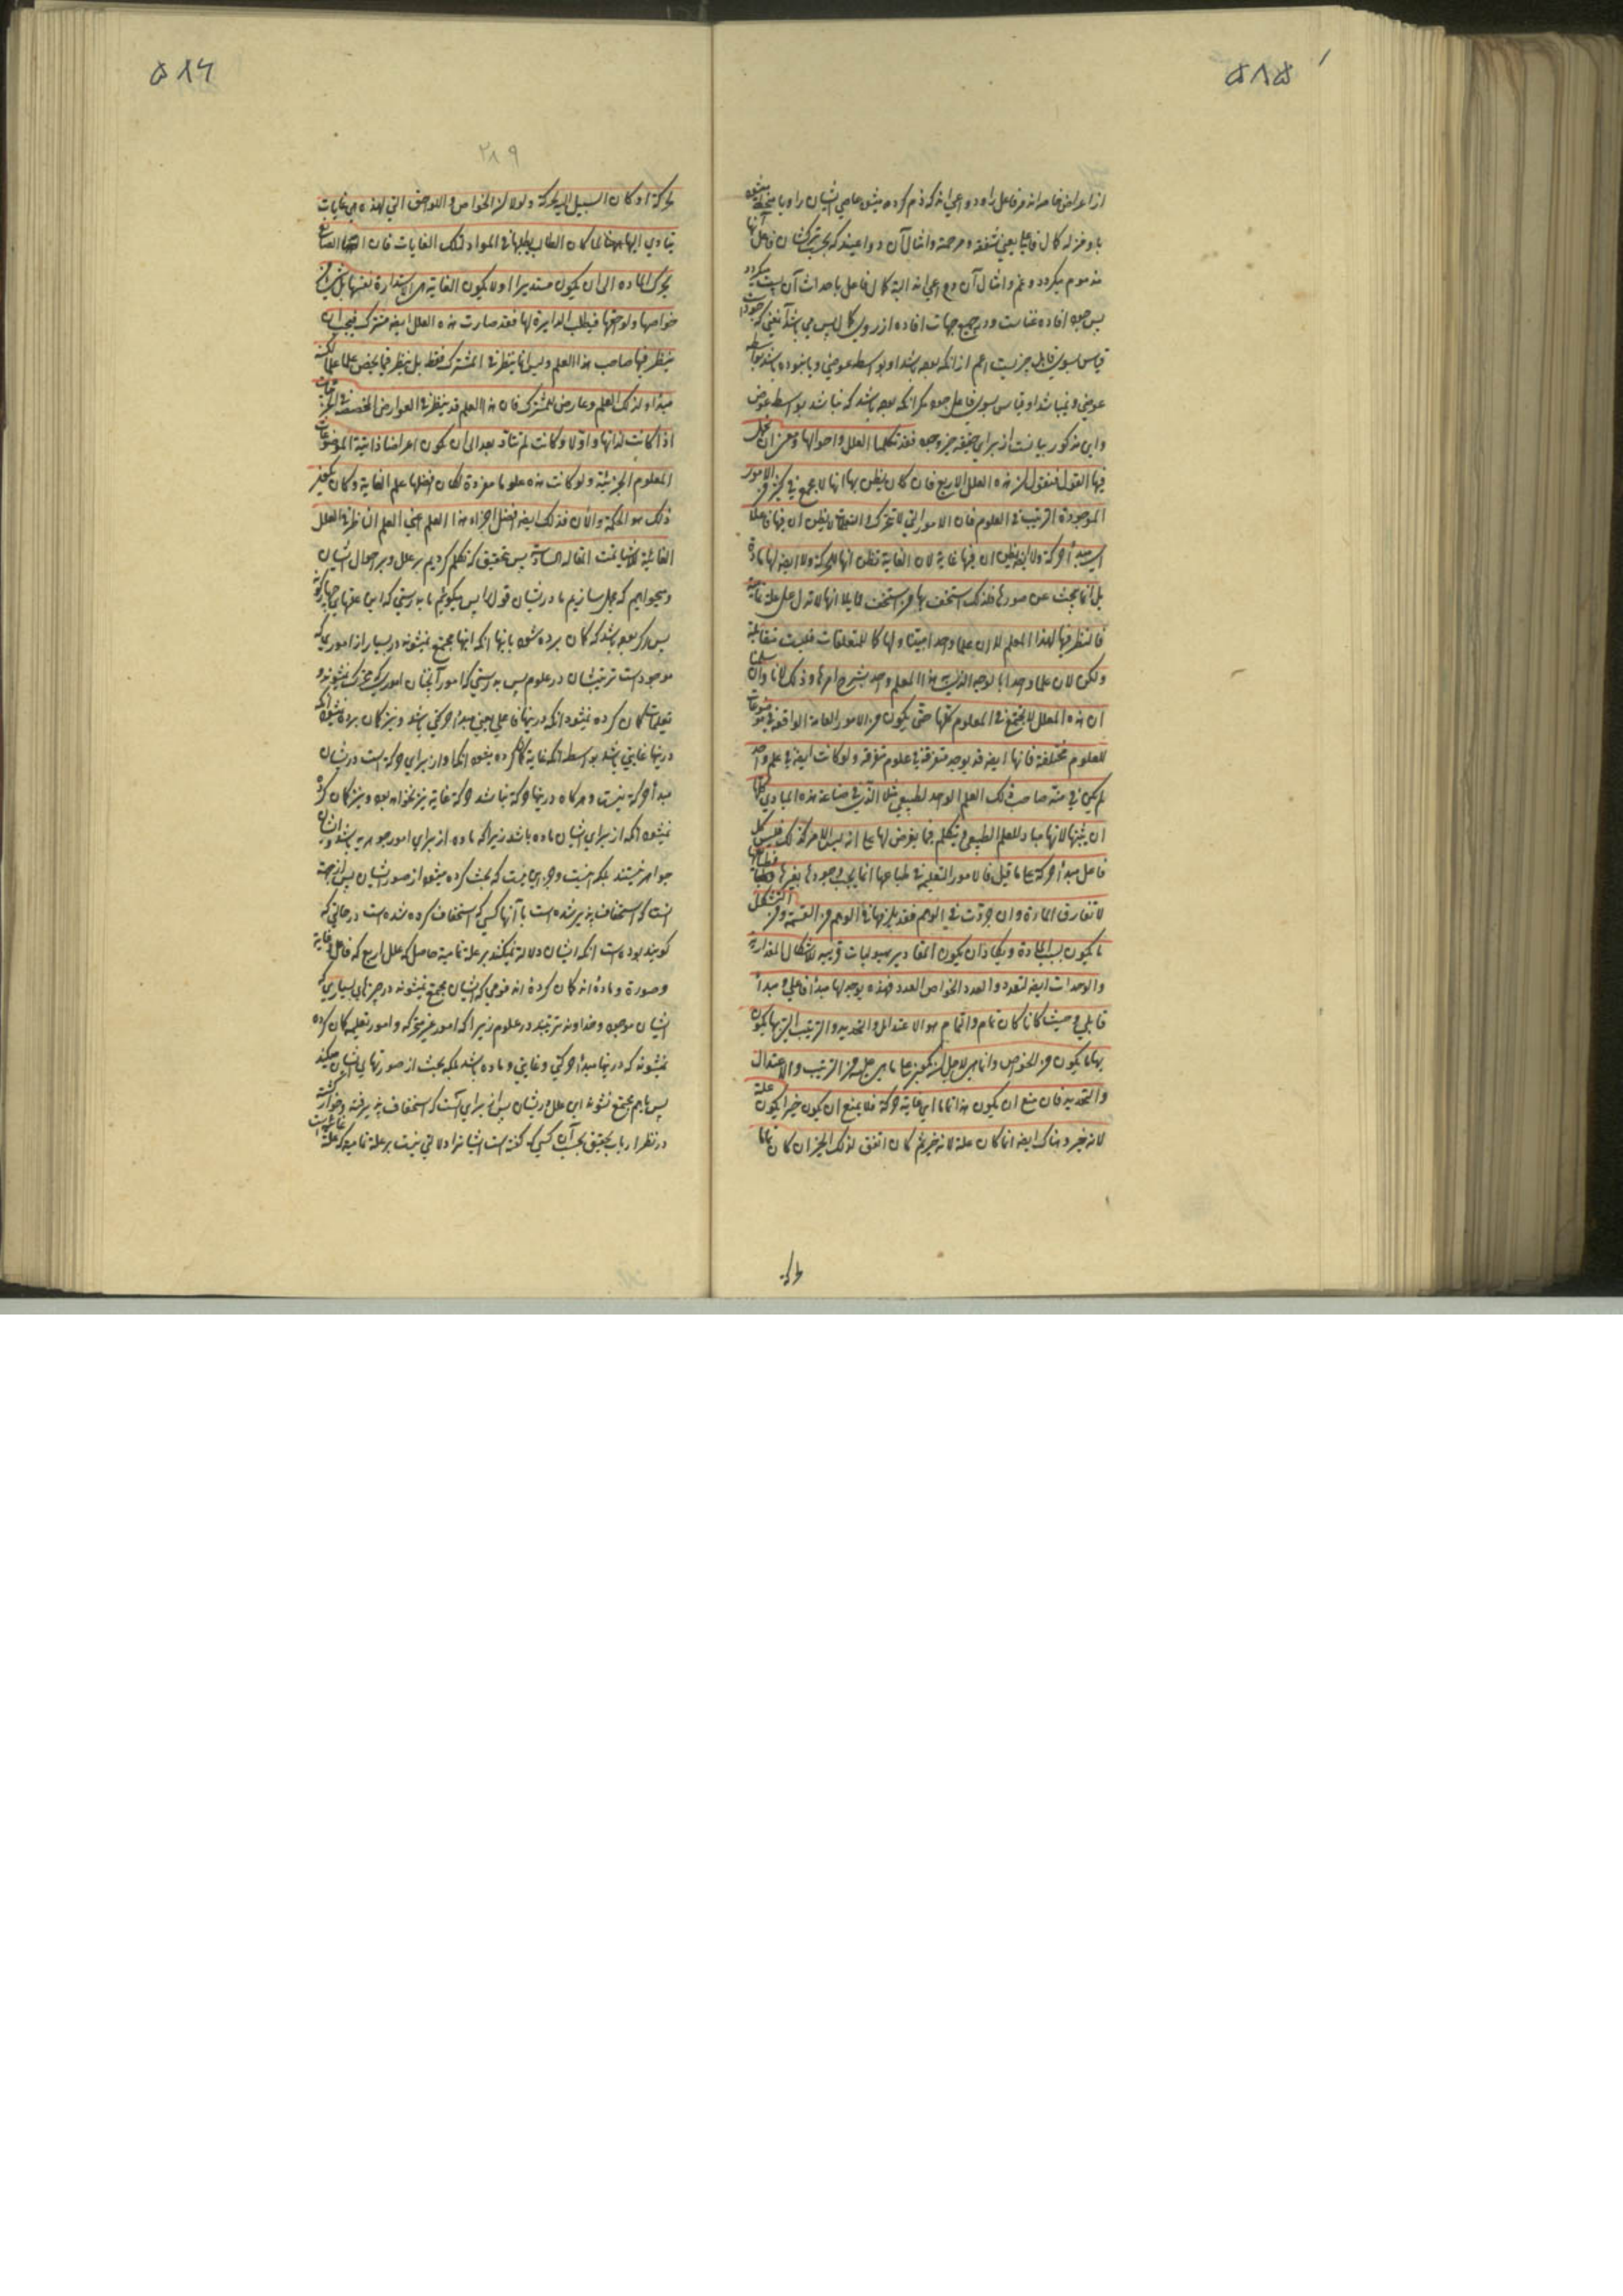 ۵۸۵
از اعراض خاصه اند مر فاعل را و دواعی اند که ذم کرده میشود عاصی ایشان را و یا منحط میشود
با و منزله کمال فاعل یعنی شفقه و مرحمة و امثال آن دواعیند که بحسب ترک شان فاعل آنها
مذموم میگردد و غم و امثال آن دواعی اند البته کمال فاعل باحداث آن پست میگردد
پس جود افاده غناست و در جمیع جهات افاده از روی کمال پس می باشد آنمعنی که جود است
قیاس بسوی قابل خیریست اعم از آنکه بوده باشد او بواسطه عوضی و یا نبوده باشد بواسطه
عوضی و نمیباشد او قیاس بسوی فاعل جود مگر آنکه بوده باشد که نباشد بواسطه عوض
و این مذکور بیانست از برای حقیقه خیر و جود فقد تکلمنا العلل و احوالها و نحن ان نجمل
فیها القول فنقول ان هذه العلل الاربع فان کان یظن بها انها لا تجمع فی کثیر من الامور
الموجودة الترتیب فی العلوم فان الامور التی لا تتحرک و التعلیمات لا یظن ان فیها فاعلا
ای مبدأ حرکة ولا یظن ان فیها غایة لان الغایة تظن انها للحرکة ولا ایضا لها مادة
بل انما یبحث عن صورها فلذلک استخف بها من استخف قایلا انها لا تدل علی علة تمامیة
فالنظر فیها لهذا العلم لا ان علما واحدا یتناولها کالمتعلقات فلیست متقابلة
ولکن لان علما واحدا بالوجه الذی به هذا العلم واحد یشرح امرها و ذلک لانا وان سلمنا
ان هذه العلل لا تجتمع فی العلوم کلها حتی یکون من الامور العامة الواقعة فی موضوعات
للعلوم مختلفة فانها ایضا قد یوجد متفرقة فی علوم متفرقه ولو کانت ایضا فی علم واحد
لم یکن فی منة صاحب ذلک العلم الواحد کطبیعی مثلا الذی فی صناعة هذه المبادی کلها
ان یثبتها لانها مبادٍ للعلم الطبیعی و یتکلم فیما یعرض لها علی انه لیس الامر کذلک فلیس کل
فاعل مبدأ حرکة علی ما قیل فالامور التعلیمیة فی طباعها انما یجب وجودها بغیرها فطباعها
لا تفارق المادة وان جردت فی الوهم فقد یلزمها فی الوهم من القسمة و من التشکل
ما یکون بسبب المادة و یکاد ان یکون المقادیر هیولیات قریبة للاشکال المقداریة
والوحدات ایضا لتعدد و العدد لخواص العدد فهذه یوجد لها مبدأ فاعلی و مبدأ
قابلی و حیث کانا کان تمام و التمام هو الاعتدال و التحدید و الترتیب التی بها یکون
بها ما یکون من الخواص و انما هی لاجل ان یکون علی ما هی علیه من الترتیب و الاعتدال
و التحدید فان منع ان یکون هذا تماما ای غایة حرکة فلا یمنع ان یکون خیرا یکون علة
لانه خیر و هناک ایضا انما کان علة لانه خیر ثم کان اتفق لذلک الخیر ان کان تماما
۵۸۶
۲۸۹
لحرکة او کان السبیل الیه بالحرکة ولولا ان الخواص و اللواحق التی لهذه هی غایات
یتأدی الیها لما کان الطالب یطلبها فی المواد لتلک الغایات فان الصانع
یحرک المادة الی ان یکون مستدیرا ولا یکون الغایة هی الاستدارة بعینها بل شیئا من
خواصها و لواحقها فیطلب الدایرة لها فقد صارت هذه العلل ایضا مشترک فیجب ان
ینظر فیها صاحب هذا العلم ولیس انما ینظر فی المشترک فقط بل ینظر فیما یخص علما علما لکنه
مبدأ لذلک العلم و عارض للمشترک فان هذا العلم قد ینظر فی العوارض المخصصة للجزئیات
اذا کانت لذاتها و اولا و کانت لم تتأد بعد الی ان یکون اعراضا ذاتیة لموضوعات
العلوم الجزئیة ولو کانت هذه علوما مفردة لکان افضلها علم الغایة و کان یکون
ذلک هو الحکمة والآن فذلک ایضا افضل اجزاء هذا العلم اعنی العلم الناظر فی العلل
الغائیة للاشیا تمت المقاله السادسة پس بتحقیق که تکلم کردیم بر علل و بر احوال ایشان
و میخواهیم که مجمل سازیم ما در ایشان قول را پس میگوئیم ما بدرستی که این علتهای چهارگانه
پس اگر بوده باشد که گمان برده شود باینها آنکه اینها مجتمع نمیشوند در بسیار از اموریکه
موجود است ترتیبشان در علوم پس بدرستی که امور آنچنان امور که متحرک نمیشوند و
تعلیمات گمان کرده نمیشود آنکه در اینها فاعلی یعنی مبدأ حرکتی باشد و نیز گمان برده نمیشود آنکه
در اینها غایتی باشد بواسطه آنکه غایة گمان کرده میشود آنکه او از برای حرکة است در ایشان
مبدأ حرکة نیست و هرگاه در اینها حرکة نباشد حرکة غایة نیز نخواهد بود و نیز گمان کرده
نمیشود آنکه از برای ایشان ماده باشد زیرا که ماده از برای امور جوهریه باشد و ایشان
جواهر نیستند بلکه اینست و جز این نیست که بحث کرده میشود از صور ایشان پس از این جهة
است که استخفاف پذیر شده است با آنها کسی که استخفاف کرده شده است در حالتی که
گوینده بوده است آنکه ایشان دلاله نمیکنند بر علة تمامیه حاصل که علل اربع که فاعل و غایة
و صورة و ماده اند گمان کرده اند قومی که ایشان مجتمع نمیشوند در چیزهای بسیاری که
ایشان موجود و خداوند ترتیبند در علوم زیرا که امور غیر متحرکه و امور تعلیمیه گمان کرده
نمیشوند که در اینها مبدأ حرکتی و غایتی و ماده باشد بلکه بحث از صورتهای ایشان میکند
پس باهم مجتمع نشوند این علل در ایشان پس از برای آنست که استخفاف پذیرفته و خوار گشته
در نظر ارباب تحقیق بحسب آن کسی که گفته است ایشانرا دلالتی نیست بر علة تمامیه که علة غائیه است